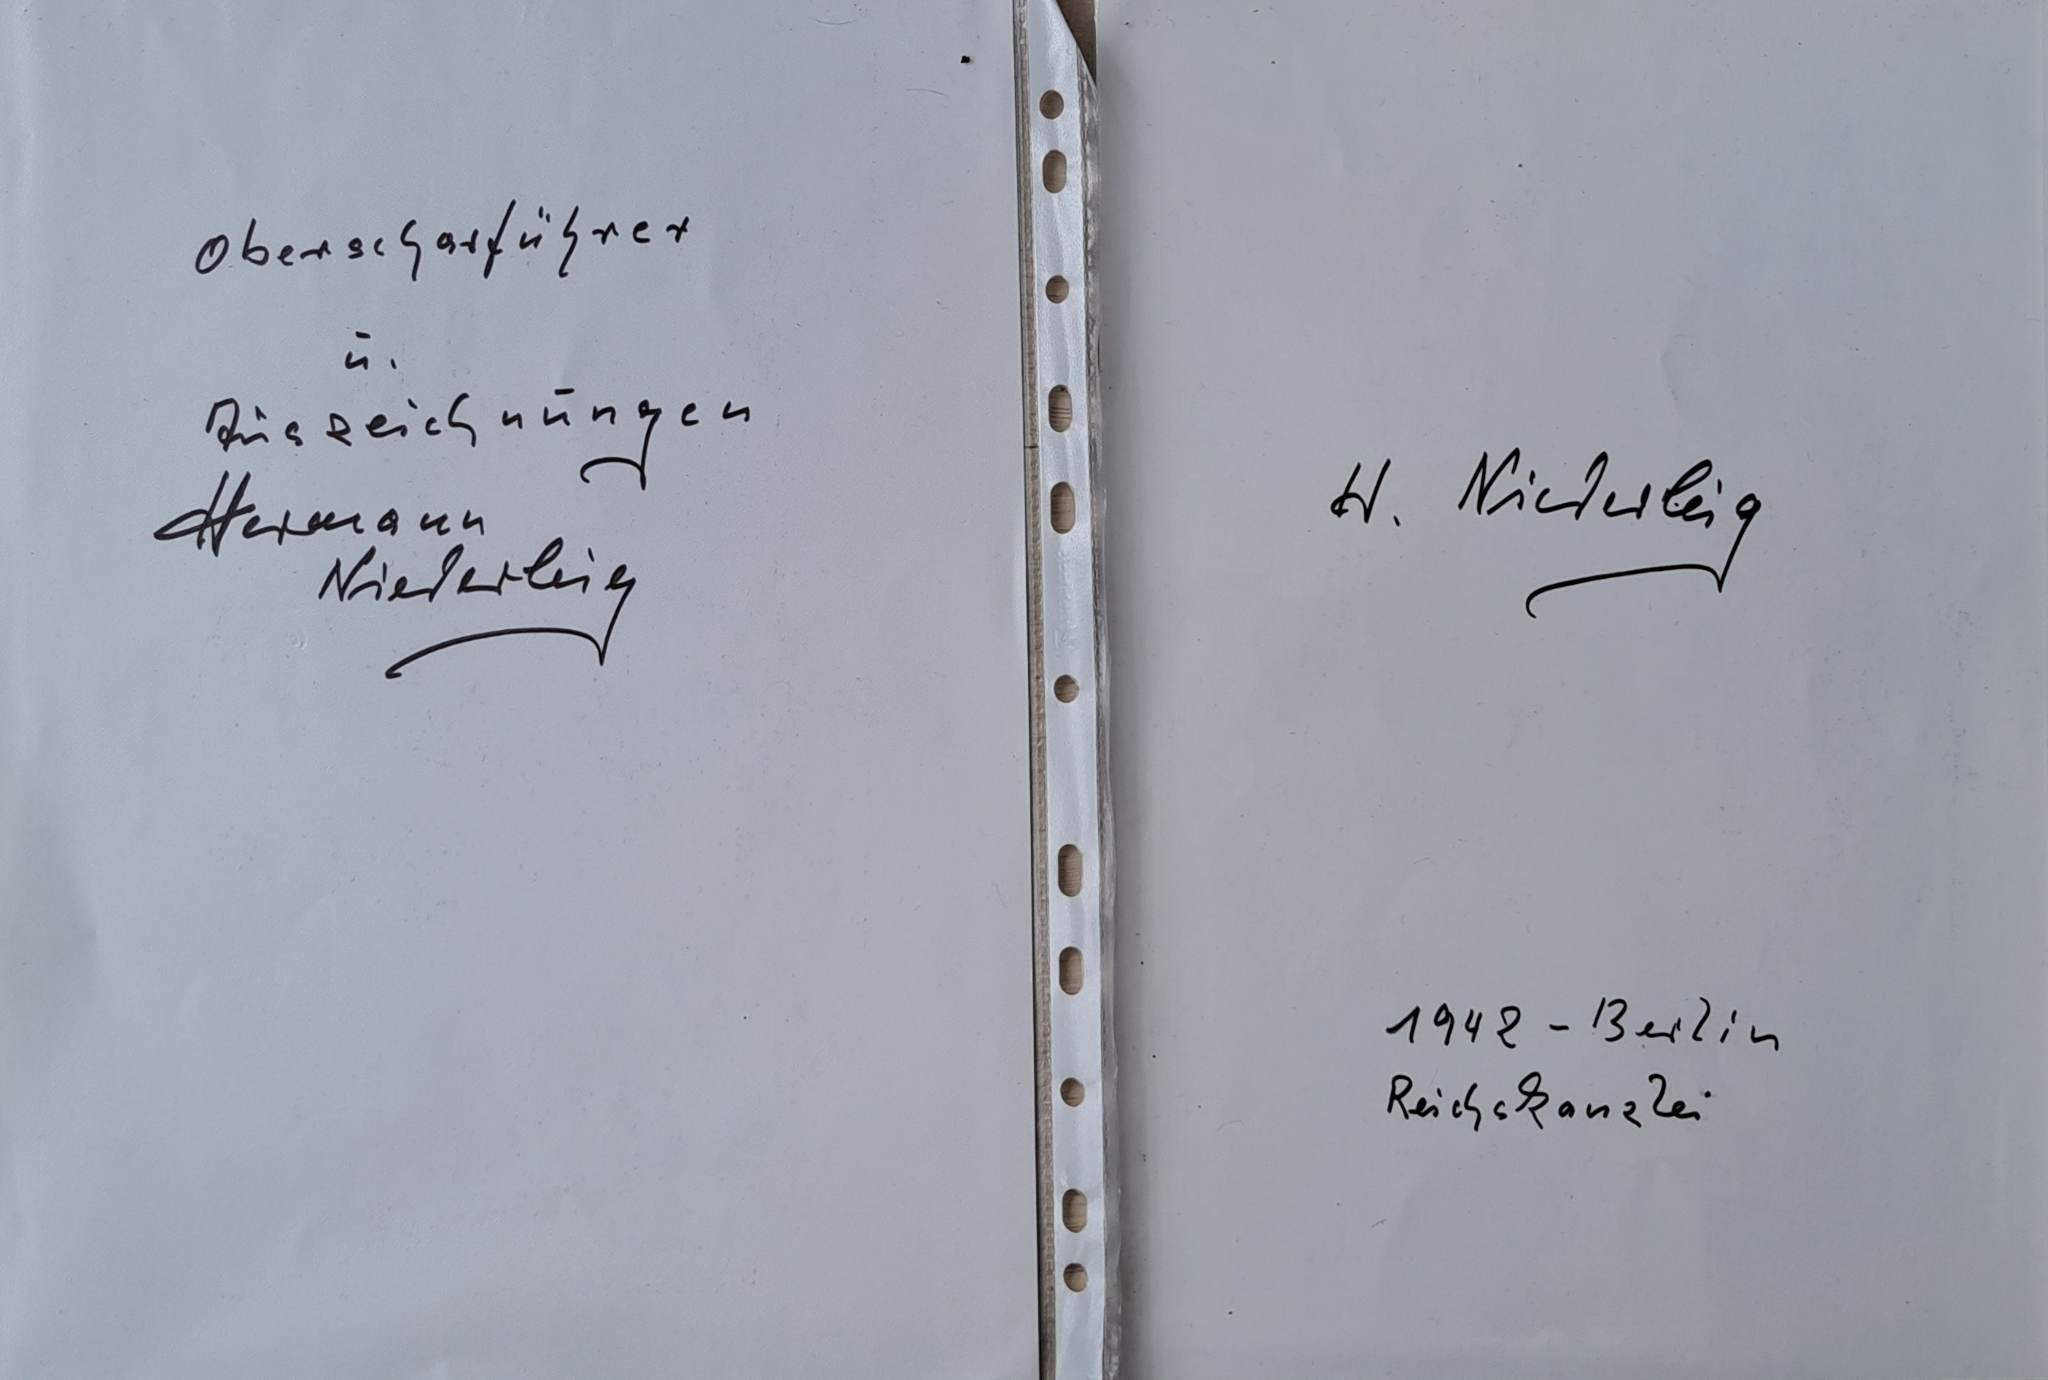 Oberscharführer
ū.
Aūszeichnūngen
Hermann
Niederleig
H. Niederleig
1942 - Berlin
Reichskanzlei